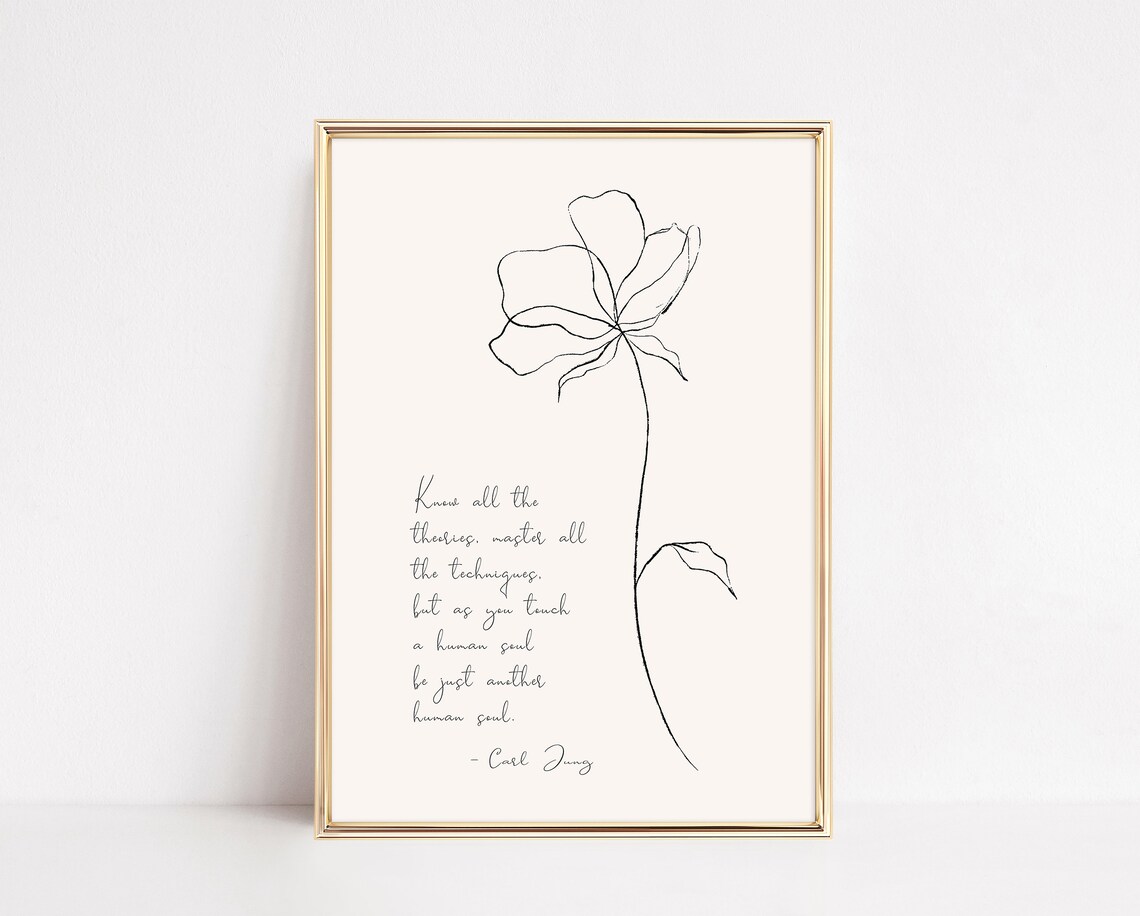 Know all the
theories, master all
the techniques,
but as you touch
a human soul
be just another
human soul.
- Carl Jung